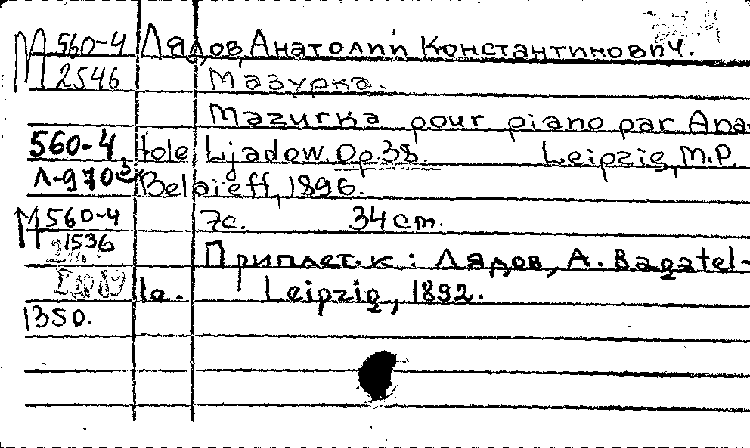 М 560-4 Лядов, Анатолий Константинович.
2546 Мазурка.
Mazurka pour piano par Ana-
560-4 tole Ljadow. Op.38. Leipzig, M.P.
Л-970 Belaieff, 1896.
М 560-4 7с. 34cm.
1536
Приплет. к: Лядов, А. Bagatel-
le. Leipzig, 1892.
1350.